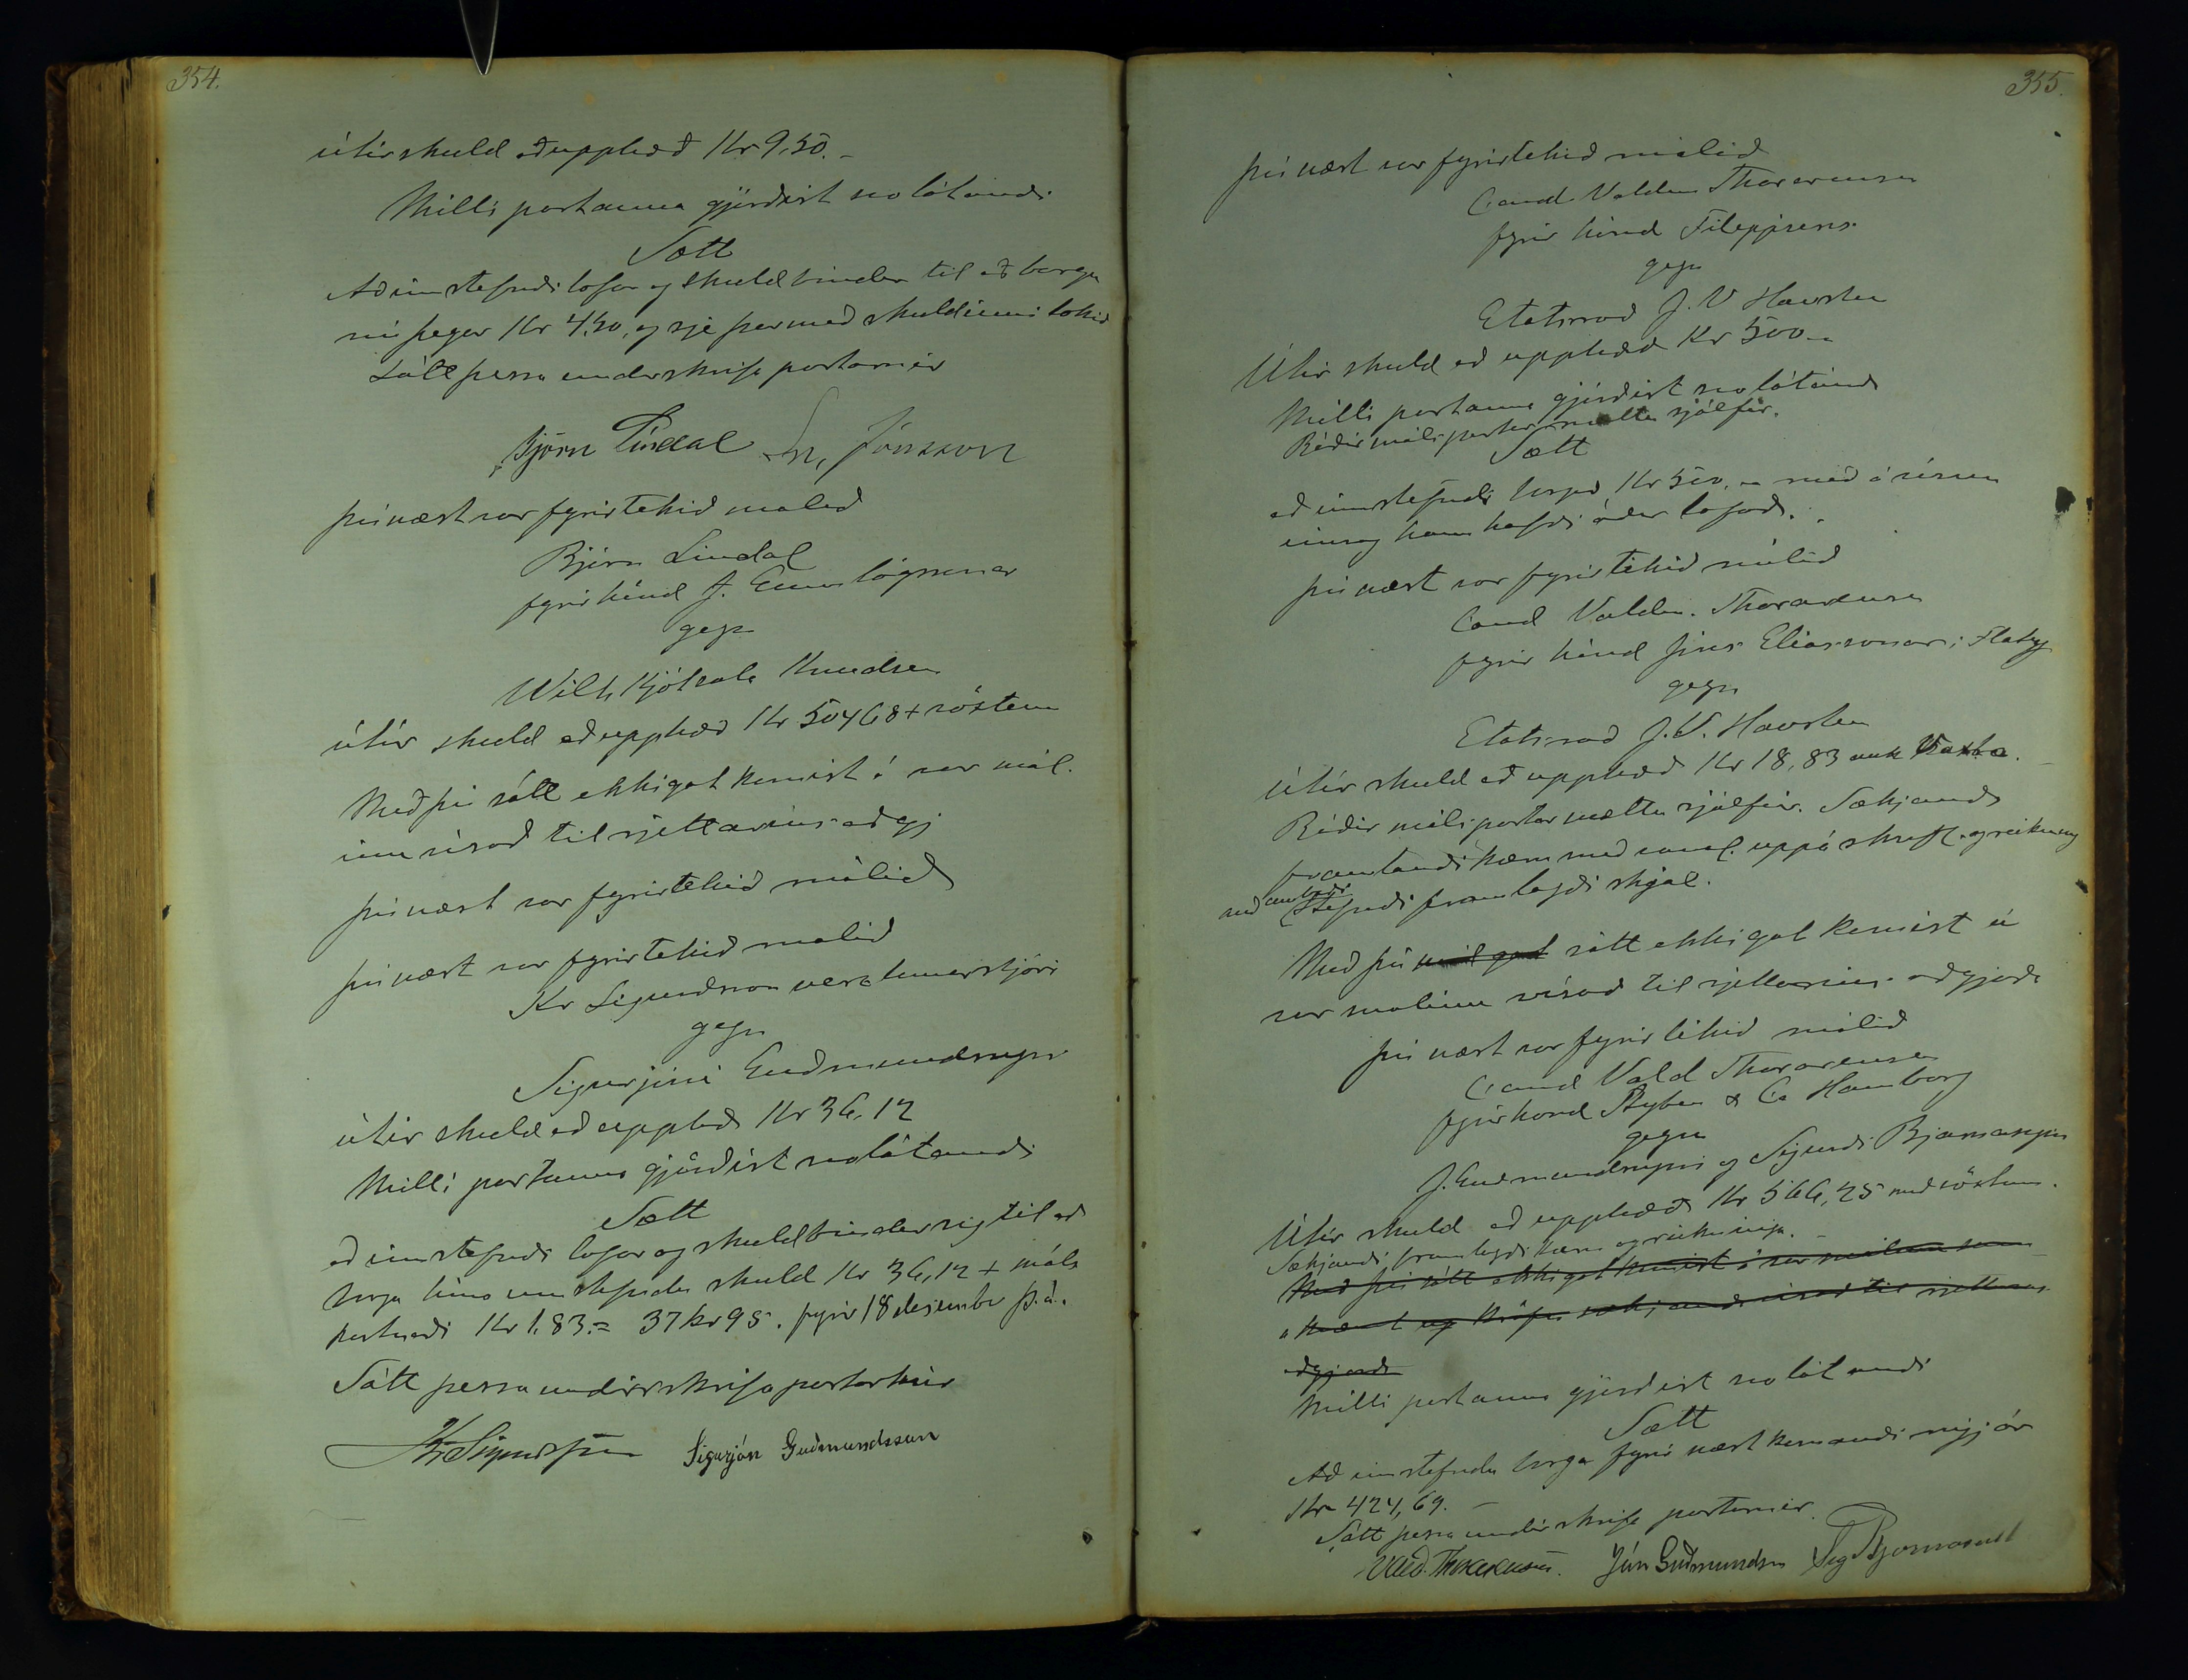 354.
útúr skuld að upphæð Kr 9.50. -
Milli partanna gjörðist svolátandi
Sætt
Að innstefndi lofar og skuldbindur til að borga
nú þegar Kr 4.50, og sje þar með skuldinni lokið
Sátt þessa underskrifa partarnir
Björn Líndal Jónsson
því næst var fyrirtekið málið
Björn Lindal
fyrir hönd J. Gunnlögssonar
gegn
Wilh. Knudsen
útúr skuld að upphæð Kr 504 68 + vöxtum
Með því sátt ekki gat komist á var mál
inu vísað til rjettarins aðgj
því næst var fyrirtekið málið
því næst var fyrirtekið málið
Kr Sigurdsson verzlunarstjóri
gegn
Sigurjóni Guðmundssyni
útúr skuld að upphæð Kr 36,12
Milli partanna gjörðist svolátandi
Sætt
að innstefndi lofar og skuldbindur sig til að
borga hina umstefndu skuld Kr 36,12 + máls
kostnaði Kr 1.83. = 37 kr 95. fyrir 18 desember þ.á.
Sátt þessa undirskrifa partarhnir
Kr Sigurdsson Sigurjón Guðmundsson
355.
því næst var fyrirtekið málið
Cand Valdm Thorarensen
fyrir hönd Filippsens
gegn
Etatsrad J. V Havsteen
Útúr skuld að upphæð Kr 500 -
Milli partanna gjörðist svolátandi
Báðir málspartar mættu sjálfir.
Sætt
að innstefndi borgar Kr 500, - með
einsog hann hafði áður lofað.
því næst var fyrirtekið málið
Cand Valdm. Thorarensen
fyrir hönd Jens Elíassonar í Flatey
gegn
Etatsrad J. V. Havsteen
Útúr skuld að upphæð Kr 18,83 auk Vaxta.
Báðir málspartar mættu sjálfir. Sækjandi
framlagði kæru með uppáskrift og reikning
með umboði
Stefndi framlagði skjal.
Með því sátt ekki gat komist á
var málinu vísað til rjettarins aðgjörða
því næst var fyrirtekið málið
Cand Vald Thorarensen
fyrir hönd & Co Hamborg
gegn
J. Guðmundssyni og Sigurði Bjarnasyni
Útúr skuld að upphæð Kr 566,25 með vöxtum.
Sækjandi framlagði kæru og reikninga. -
Með því sátt ekki gat komist á var málinu
kröfu sækjanda vísað til rjettarins
aðgjörða
Milli partanna gjörðist svolátandi
Sætt
Að innstefndu borga fyrir næstkomandi nýjár
Kr 424,69. -
Sátt þessa undirskrifa partarnir.
Vald. Thorarensen. Jón Guðmundsson Sig Bjarnason